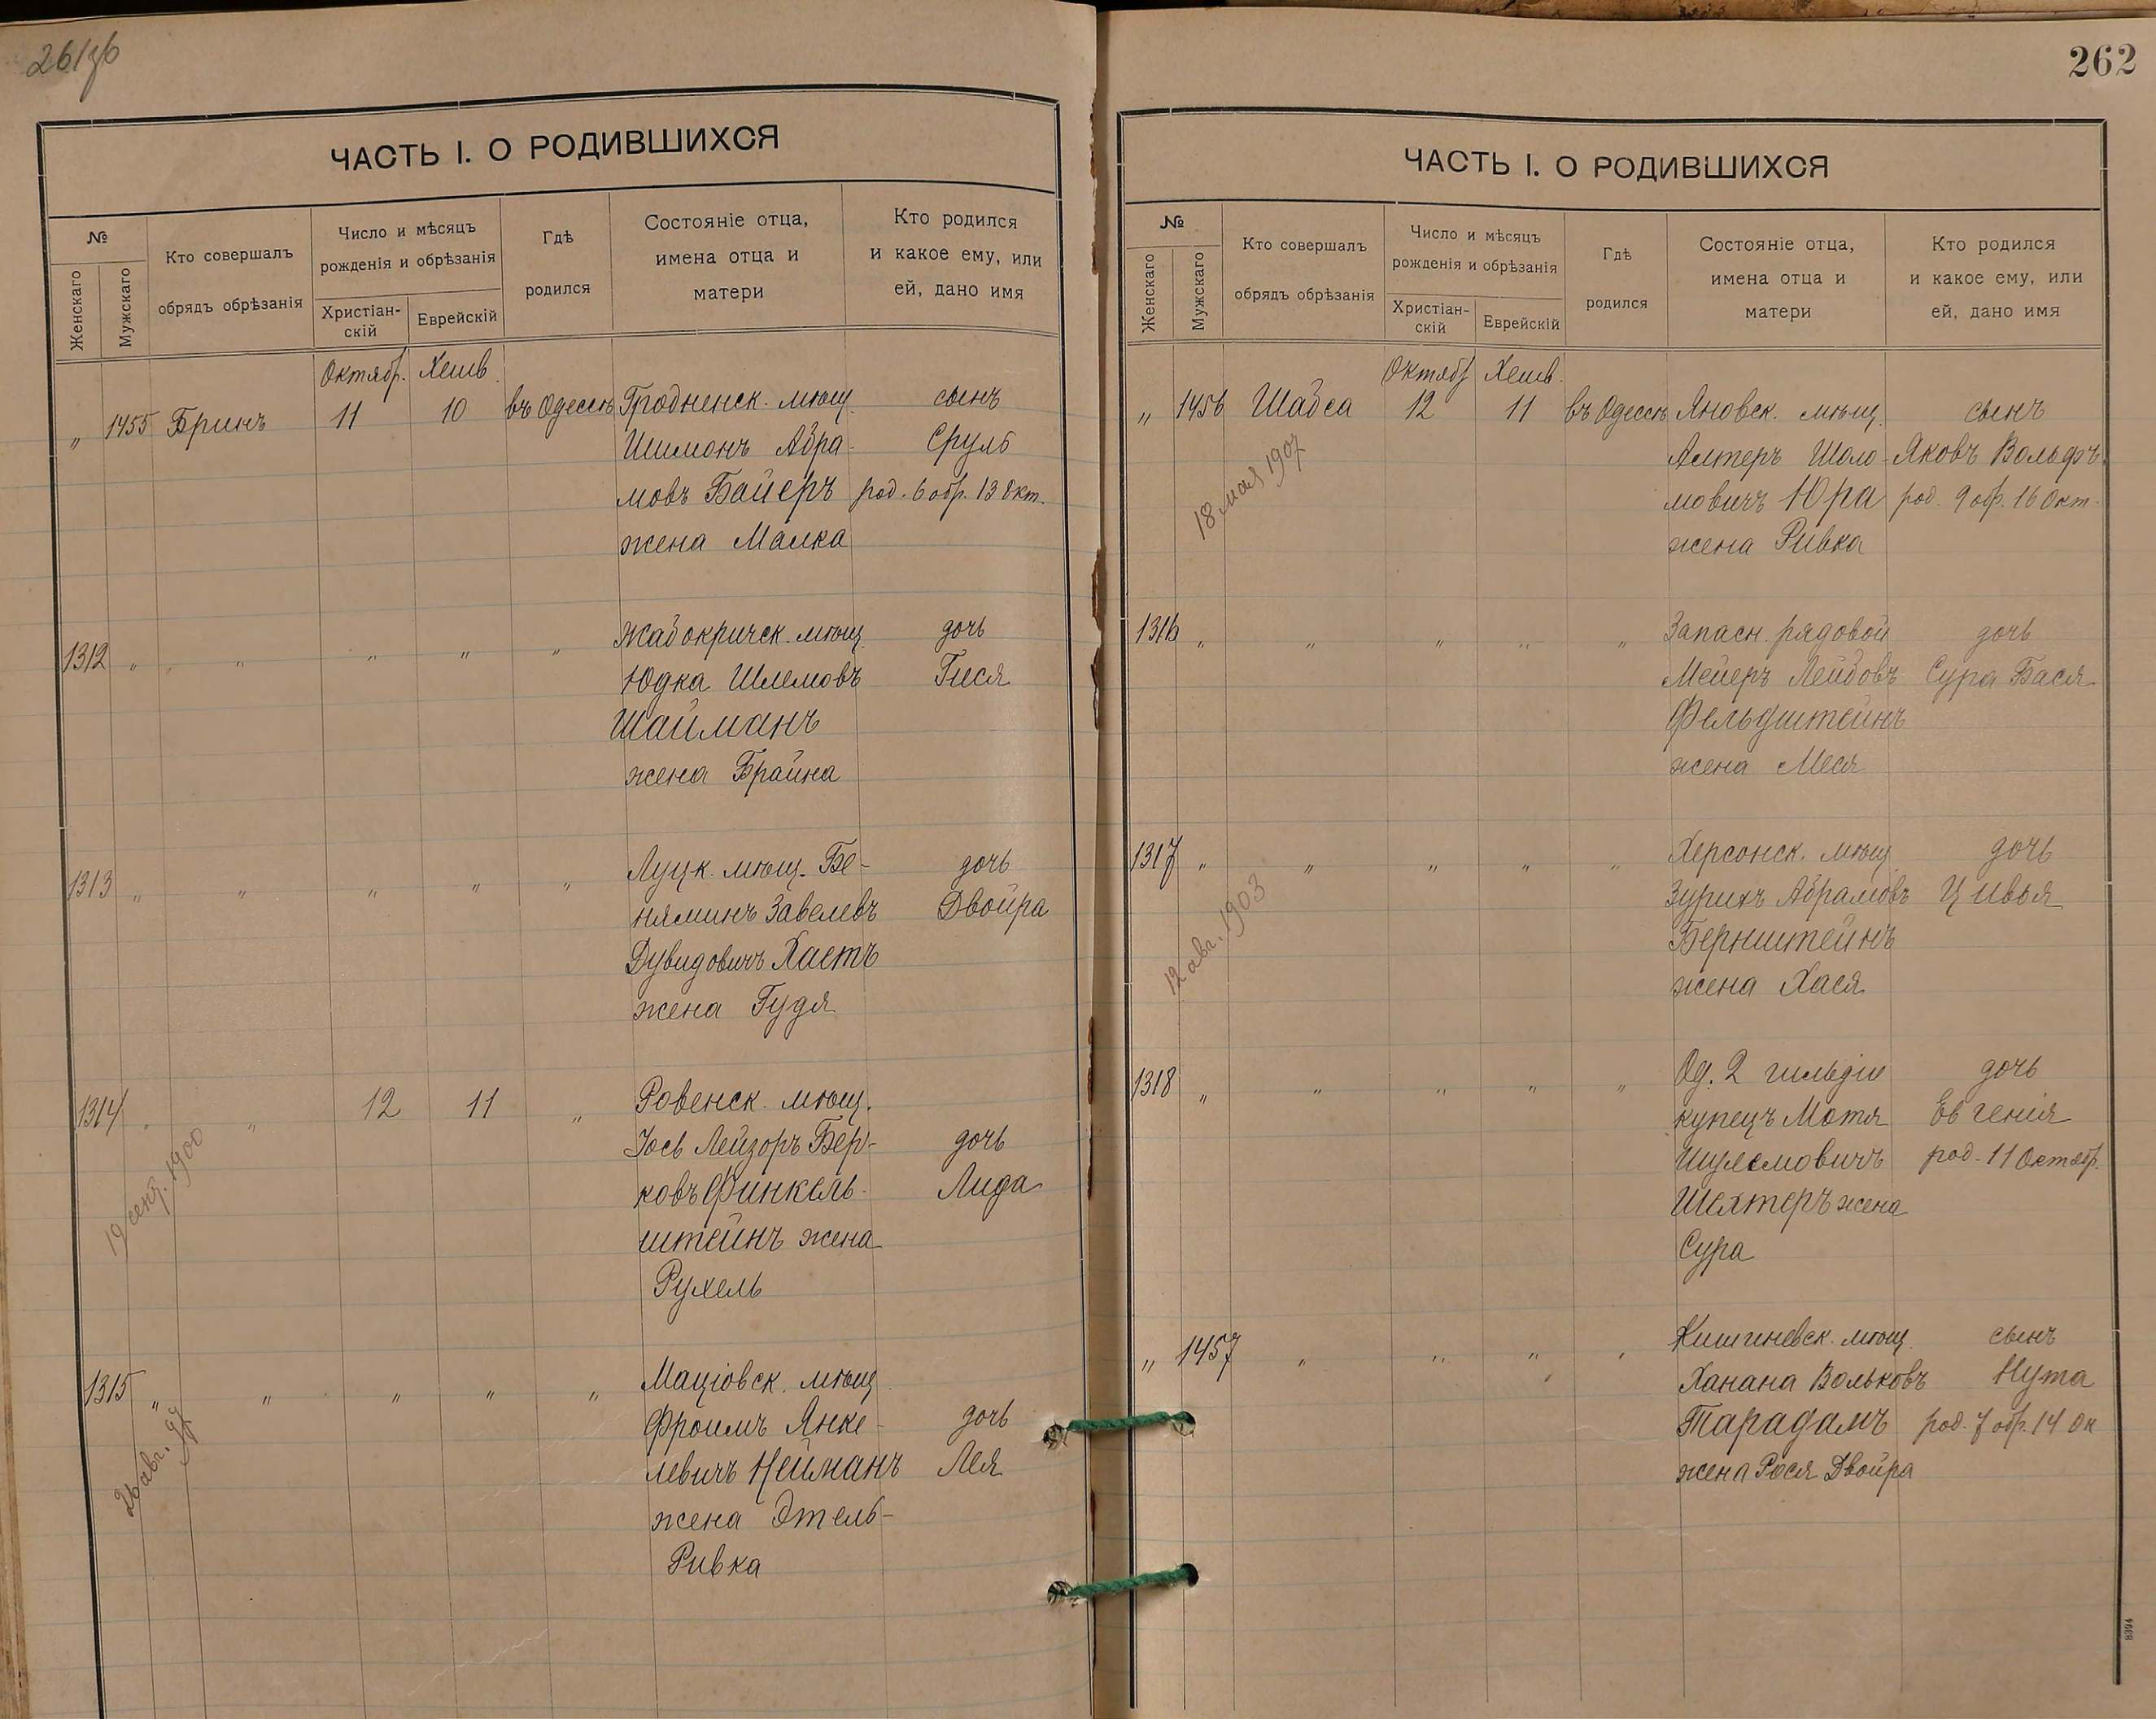 261об
ЧАСТЬ I. О РОДИВШИХСЯ
№
Женскаго
Мужскаго
Кто совершалъ
обрядъ обрѣзанія
Число и мѣсяцъ
рожденія и обрѣзанія
Христіан-
скій
Еврейскій
Гдѣ
родился
Состояніе отца,
имена отца и
матери
Кто родился
и какое ему, или
ей, дано имя
Октябр. Хешв.
„ 1455 Бринъ 11 10 въ Одессѣ Гродненск. мѣщ. сынъ
Шимонъ Абра- Сруль
мовъ Байеръ род. 6 обр. 13 Окт.
жена Малка
1312 „ „ „ „ „ Жабокричск. мѣщ. дочь
Юдка Шлемовъ Гися
Шайманъ
жена Брайна
1313 „ „ „ „ „ Луцк. мѣщ. Бе- дочь
няминъ Завелевъ Двойра
Дувидовичъ Хастъ
жена Гудя
1314 „ „ 12 11 „ Ровенск. мѣщ.
Іось Лейзоръ Бер- дочь
ковъ Финкель- Лида
штейнъ жена
Рухель
19 сент. 1900
1315 „ „ „ „ „ Маціовск. мѣщ.
Фроимъ Янке- дочь
левичъ Нейманъ Лея
жена Этель-
Ривка
26 авг. 97
262
ЧАСТЬ I. О РОДИВШИХСЯ
№
Женскаго
Мужскаго
Кто совершалъ
обрядъ обрѣзанія
Число и мѣсяцъ
рожденія и обрѣзанія
Христіан-
скій
Еврейскій
Гдѣ
родился
Состояніе отца,
имена отца и
матери
Кто родился
и какое ему, или
ей, дано имя
Октябр Хешв.
„ 1456 Шабса 12 11 въ Одессѣ Яновск. мѣщ. сынъ
Алтеръ Шоло- Яковъ Вольфъ
мовичъ Юра род. 9 обр. 16 Окт.
жена Ривка
18 мая 1907
1316 „ „ „ „ „ Запасн. рядовой дочь
Мейеръ Лейбовъ Сура Бася
Фельдштейнъ
жена Меся
1317 „ „ „ „ „ Херсонск. мѣщ. дочь
Зурихъ Абрамовъ Цивья
Бернштейнъ
жена Хася
12 авг. 1903
1318 „ „ „ „ „ Од. 2 гильдіи дочь
купецъ Мотя Евгенія
Шулемовичъ род. 11 Октябр.
Шехтеръ жена
Сура
„ 1457 „ „ „ „ Кишиневск. мѣщ. сынъ
Ханана Вольковъ Нута
Тарадамъ род. 7 обр. 14 Ок
жена Рося Двойра
8394